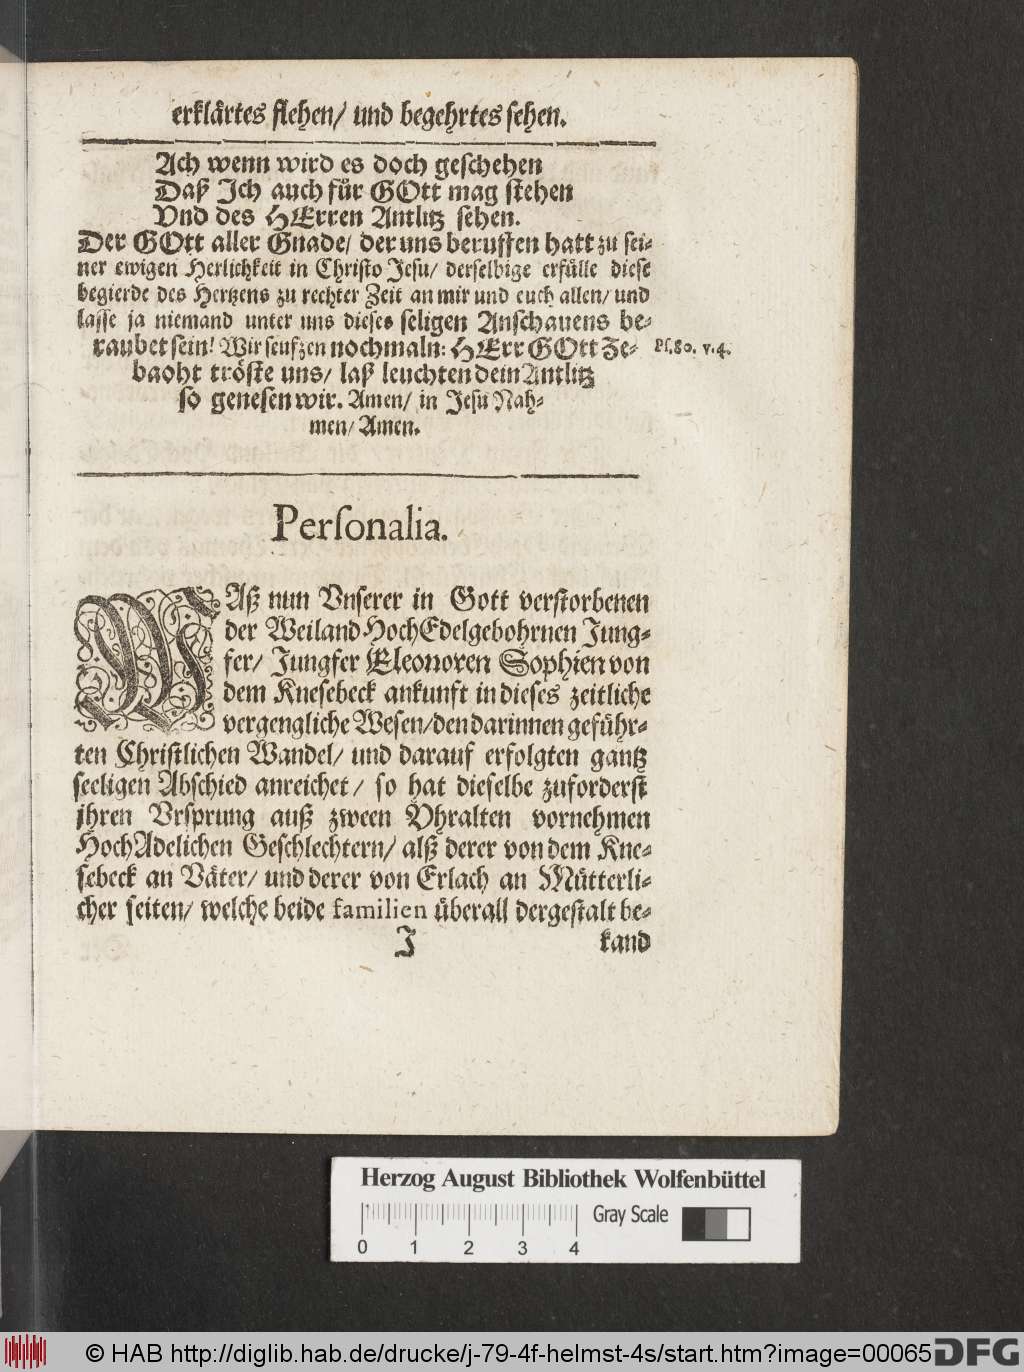 erklärtes flehen/ und begehrtes sehen.
Ach wenn wird es doch geschehen
Daß Ich auch für GOtt mag stehen
Vnd des HErren Antlitz sehen.
Der GOtt aller Gnade/ der uns beruffen hatt zu sei-
ner ewigen Herlichkeit in Christo Jesu/ derselbige erfülle diese
begierde des Hertzens zu rechter Zeit an mir und euch allen/ und
lasse ja niemand unter uns dieses seligen Anschauens be-
raubet sein! Wir seufzen nochmaln: HErr GOtt Ze-
Ps. 80. v. 4.
baoht tröste uns/ laß leuchten dein Antlitz
so genesen wir. Amen/ in Jesu Nah-
men/ Amen.
Personalia.
WAß nun Vnserer in Gott verstorbenen
der Weiland HochEdelgebohrnen Jung-
fer/ Jungfer Eleonoren Sophien von
dem Knesebeck ankunft in dieses zeitliche
vergengliche Wesen/ den darinnen geführ-
ten Christlichen Wandel/ und darauf erfolgten gantz
seeligen Abschied anreichet/ so hat dieselbe zuforderst
jhren Vrsprung auß zween Vhralten vornehmen
HochAdelichen Geschlechtern/ alß derer von dem Kne-
sebeck an Väter/ und derer von Erlach an Mütterli-
cher seiten/ welche beide familien überall dergestalt be-
J kand
Herzog August Bibliothek Wolfenbüttel
0 1 2 3 4 Gray Scale
© HAB http://diglib.hab.de/drucke/j-79-4f-helmst-4s/start.htm?image=00065 DFG